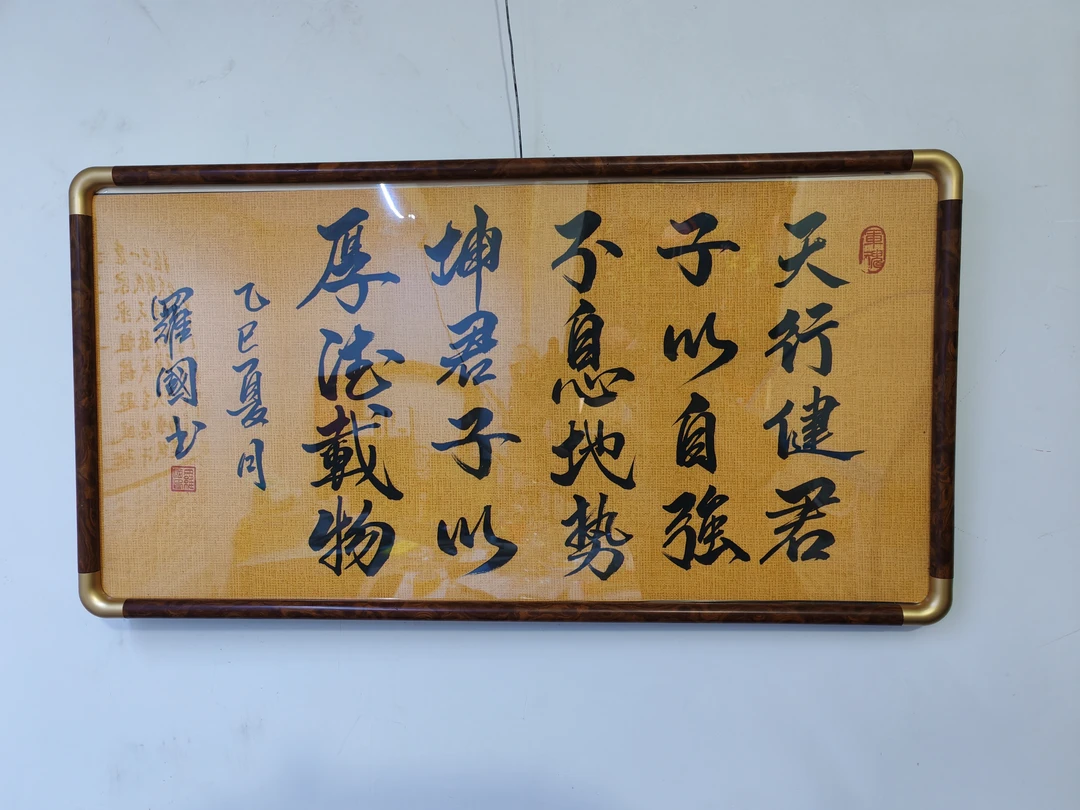 天行健君
子以自強
不息地势
坤君子以
厚德載物
乙巳夏月
羅國书
軍魂